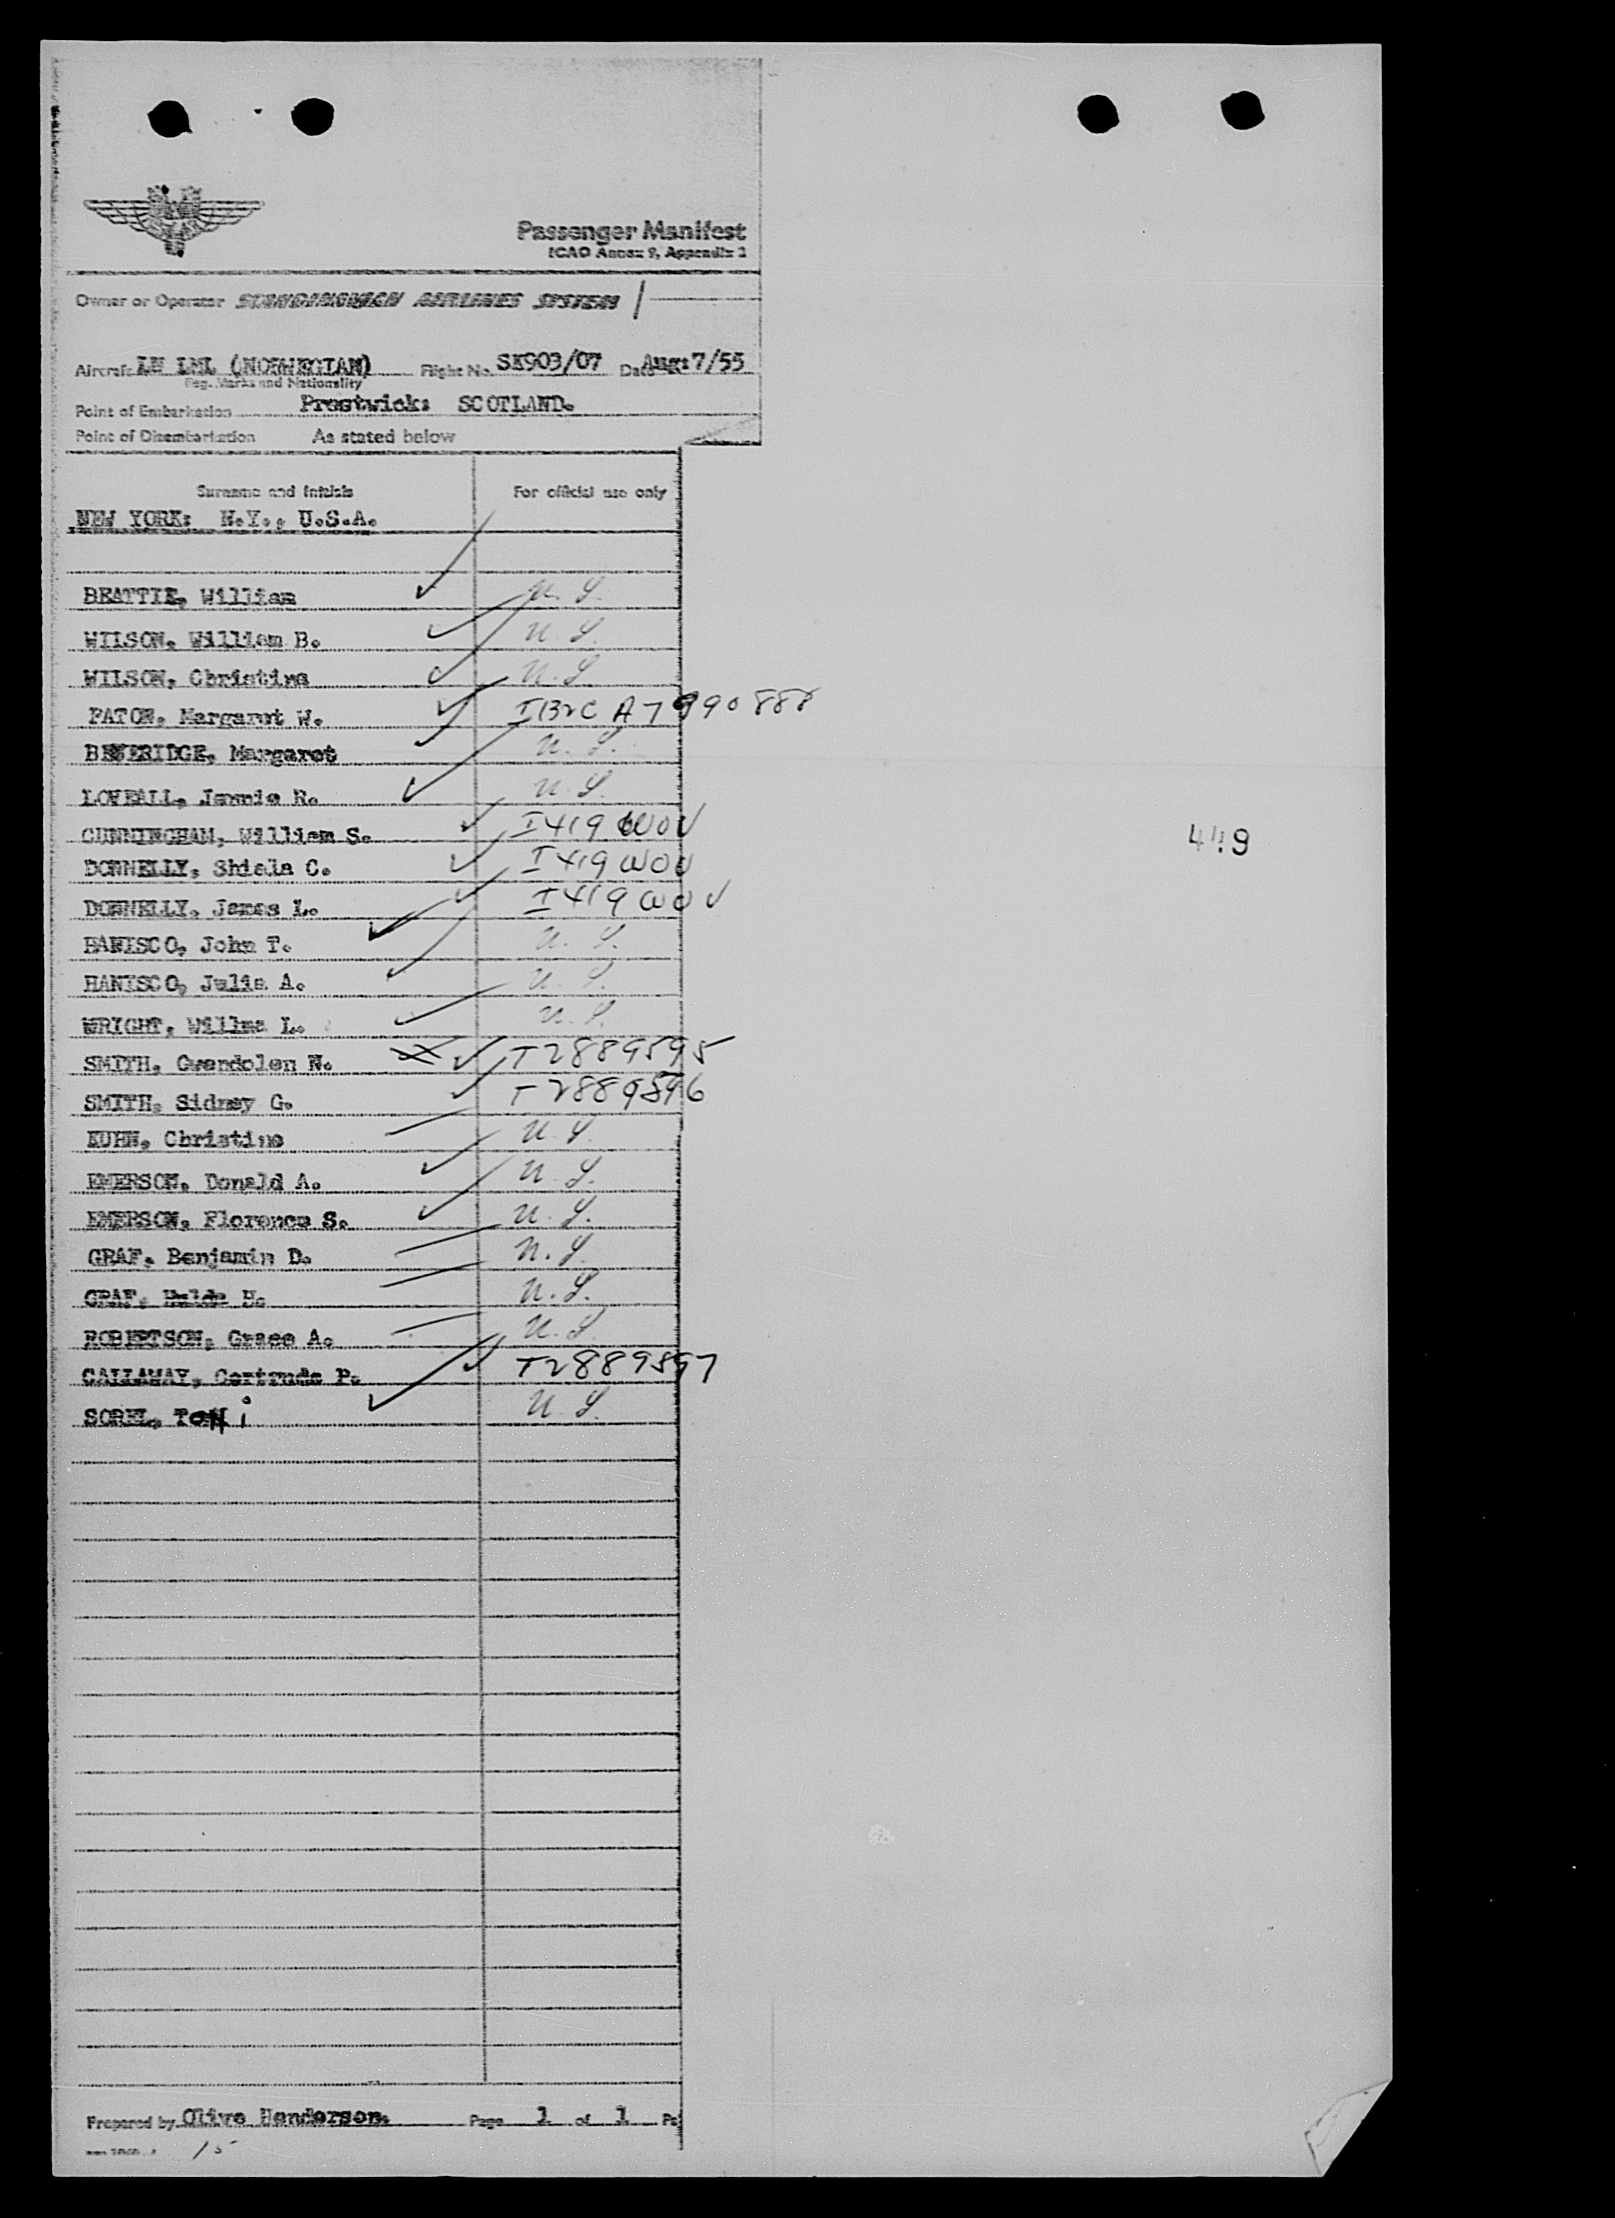 Passenger Manifest
ICAO Annex 9, Appendix 2
Owner or Operator SCANDINAVIAN AIRLINES SYSTEM
Aircraft LN LML (NORWEGIAN) Flight No. SK903/07 Date Aug:7/55
Reg. Marks and Nationality
Point of Embarkation Prestwick: SCOTLAND.
Point of Disembarkation As stated below
Surname and Initials For official use only
NEW YORK: N.Y., U.S.A.
BEATTIE, William U.S.
WILSON, William B. U.S.
WILSON, Christina U.S.
PATON, Margaret W. A7990888
BEVERIDGE, Margaret U.S.
LOVEALL, Jennie R. U.S.
CUNNINGHAM, William S. I419 WOV
DONNELLY, Shiela C. I419 WOV
DONNELLY, James L. I419 WOV
HANISCO, John T. U.S.
HANISCO, Julia A. U.S.
WRIGHT, Willma L. U.S.
SMITH, Gwendolen N. T2889595
SMITH, Sidney G. T2889596
KUHN, Christine U.S.
EMERSON, Donald A. U.S.
EMERSON, Florence S. U.S.
GRAF, Benjamin D. U.S.
GRAF, Hulda H. U.S.
ROBERTSON, Grace A. U.S.
CALLAWAY, Gertrude P. T2889597
SOREL, Toni U.S.
449
Prepared by Olive Henderson. Page 1 of 1 Pg
15